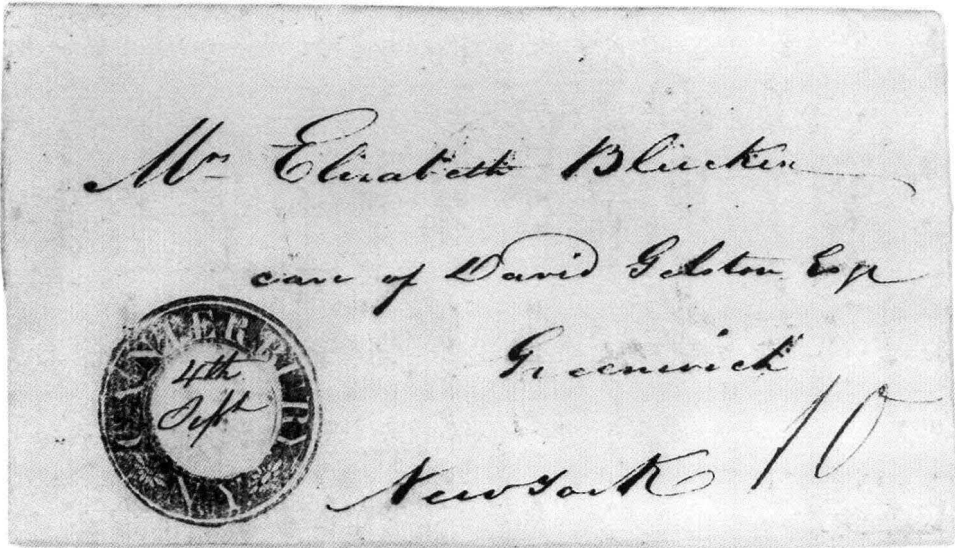 Mrs Elizabeth Bleecker
care of David Gelston Esqr
Greenwich
New York
10
CANTERBURY
4th
Sept